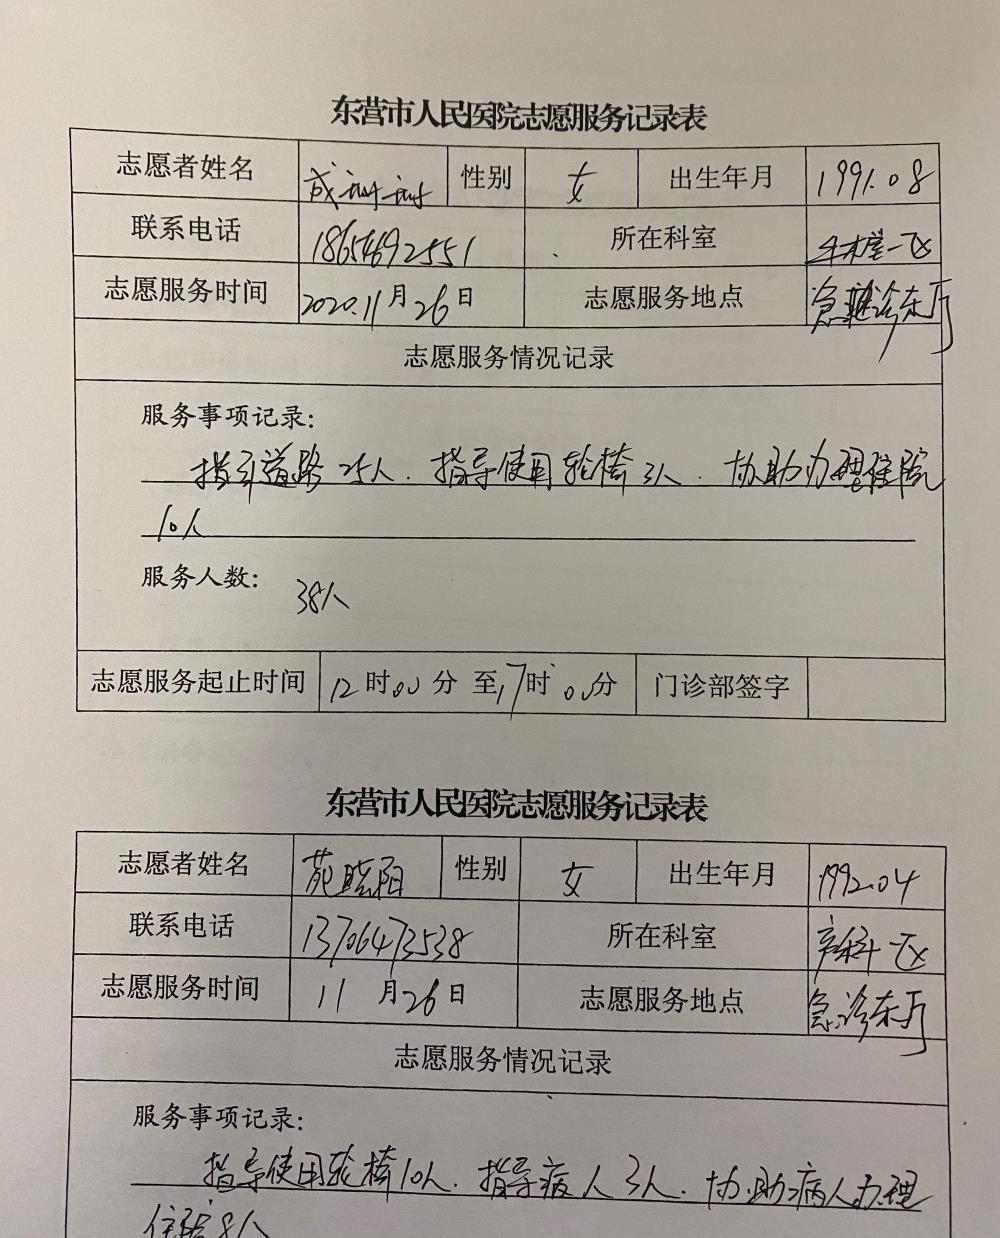 东营市人民医院志愿服务记录表
志愿者姓名 成 性别 女 出生年月 1991.08
联系电话 18654692551 所在科室 一区
志愿服务时间 2020.11月26日 志愿服务地点 急诊东厅
志愿服务情况记录
服务事项记录:
指引道路25人.指导使用轮椅3人.协助办理住院
10人
服务人数: 38人
志愿服务起止时间 12时00分至17时00分 门诊部签字
东营市人民医院志愿服务记录表
志愿者姓名 苑晓阳 性别 女 出生年月 1992.04
联系电话 13706473538 所在科室 产科一区
志愿服务时间 11月26日 志愿服务地点 急诊东厅
志愿服务情况记录
服务事项记录:
指导使用轮椅10人.指导病人3人.协助病人办理
住院8人